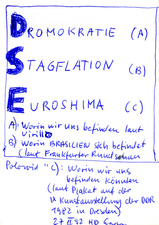 DROMOKRATIE (A)
STAGFLATION (B)
EUROSHIMA (C)
A) Worin wir uns befinden laut
Virilio
B) Worin BRASILIEN sich befindet
(laut Frankfurter Rundschau
"C): Worin wir uns
befinden könnten
(laut Plakat auf der
Kunstausstellung der DDR
1982 in Dresden)